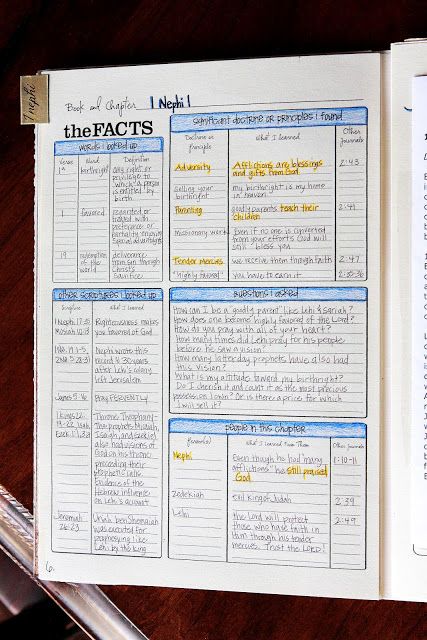 1 nephi
Book and Chapter 1 Nephi 1
the FACTS
words i looked up
Verse Word Definition
birthright any right or
privilege to
which a person
is entitled by
birth
1 favored regarded or
treated with
preference or
partiality enjoying
special advantages
19 redemption deliverance
of the world from sin through
Christ's
sacrifice
other scriptures i looked up
Scripture What I learned
1 Nephi 17:35 Righteousness makes
Mosiah 10:13 you favored of God
Nephi wrote this
2 Ne 5:28-31 record 30 years
after Lehi's colony
left Jerusalem
James 5:16 Pray FERVENTLY
1 Kings 22: Throne Theophany-
19-22, Isaiah, the prophets Micaiah,
Ezek 1:1, Isaiah, and Ezekiel
also had visions of
God on his throne
preceding their
prophetic call.
Evidence of the
Hebrew influence
on Lehi's account
Jeremiah Uriah ben Shemaiah
26:23 was executed for
prophesying like
Lehi by the king
6
significant doctrine or principles i found
Doctrine or
principle What I learned Other
journals
Adversity Afflictions are blessings 2:43
and gifts from God
Selling your my birthright is my home
birthright in heaven
Parenting goodly parents teach their 2:41
children
Missionary work Even if no one is converted
from your efforts God will
still bless you
Tender Mercies we receive them through faith 2:47
"Highly favored" you have to earn it 2:35-36
questions i asked
How can I be a goodly parent like Lehi & Sariah?
How does one become highly favored of the Lord?
How do you pray with all of your heart?
How many times did Lehi pray for his people
before he saw a vision?
How many latter day prophets have also had
this vision?
What is my attitude toward my birthright?
Do I cherish it and count it as the most precious
possession I own? Or is there a price for which
I will sell it?
people in this chapter
Person(s) What I learned From Them Other journals
Nephi Even though he had "many 1:10-11
afflictions" he still praised
God
Zedekiah evil king of Judah 2:39
Lehi the Lord will protect 2:49
those who have faith in
Him through his tender
mercies. Trust the LORD!